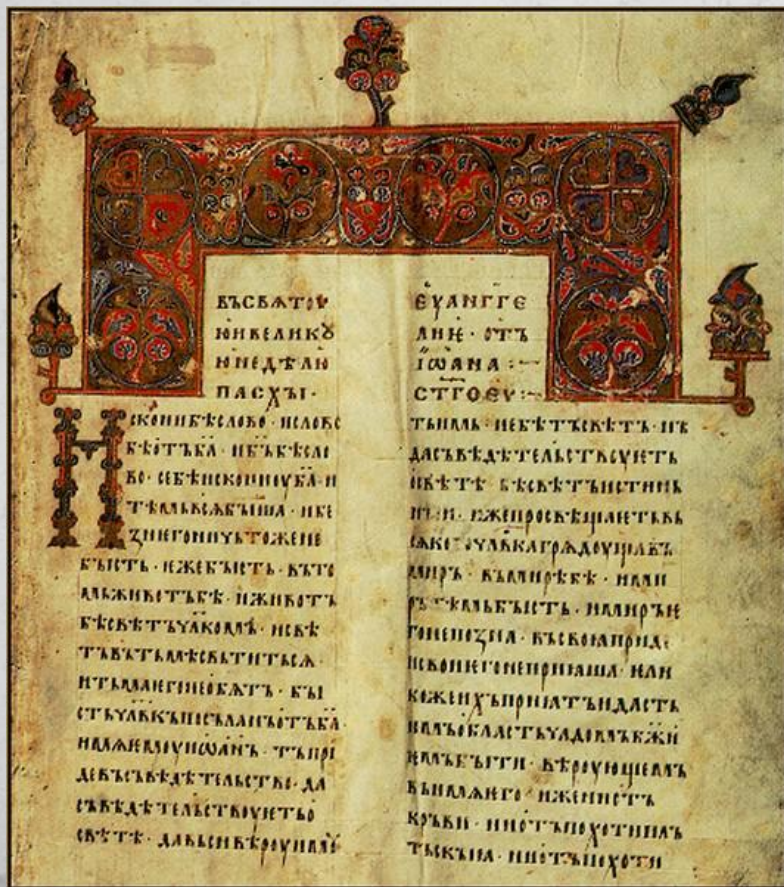 ВЪСВѦТОУ
ЮИВЕЛИКꙊ
ЮНЕДѢЛЮ
ПАСХꙐ·
ИСКОНИБѢСЛОВО· ИСЛОВО
БѢОТЪБ҃А· ИБ҃ЪБѢСЛО
ВО· СЕБѢИСКОНИОУБ҃А· И
ТѢМЬВСѦБꙐША· ИБЕ
ЗНЕГОНИЧЬТОЖЕНЕ
БꙐСТЬ· ѤЖЕБꙐСТЬ· ВЪТО
МЬЖИВОТЪБѢ· ИЖИВОТЪ
БѢСВѢТЪЧЛ҃КОМЪ· ИСВѢ
ТЪВЪТЬМѢСВЬТИТЬСѦ·
ИТЬМАѤГОНЕОБѦТЪ· БꙐ
СТЬЧЛ҃ВКЪПОСЪЛАНЪОТЪБ҃А·
ИМѦѤМОУИѠАНЪ· ТЪПРИ
ДЕВЪСЪВѢДѢТЕЛЬСТВО· ДА
СЪВѢДѢТЕЛЬСТВОУѤТЬО
СВѢТѢ· ДАВЬСИВѢРОУИМОУ
ЕУАНГГЕ
ЛИѤ· ОТЪ
ІѠАНА :~
СТ҃ГОЕУ :~
ТЬИМЬ· НЕБѢТЪСВѢТЪ· НЪ
ДАСЪВѢДѢТЕЛЬСТВОУѤТЬ
ОСВѢТѢ· БѢСВѢТЪИСТИНЬ
НꙐИ· ИЖЕПРОСВѢЩАѤТЬВЬ
СѦКОГОЧЛ҃ВКАГРѦДОУЩАВЪ
МИРЪ· ВЪМИРѢБѢ· ИМИ
РЪТѢМЬБꙐСТЬ· ИМИРЪѤ
ГОНЕПОЗНА· ВЪСВОꙖПРИДЕ
ИСВОИѤГОНЕПРИꙖША· ѤЛИ
КОЖЕИХЪПРИꙖТЪИДАСТЬ
ИМЪОБЛАСТЬЧАДОМЪБЖ҃И
ѤМЪБꙐТИ· ВѢРОУЮЩЕМЪ
ВЪИМѦѤГО· ИЖЕНИОТЪ
КРЪВИ· НИОТЪПОХОТИПЛЪ
ТЬСКꙐꙖ· НИОТЪПОХОТИ